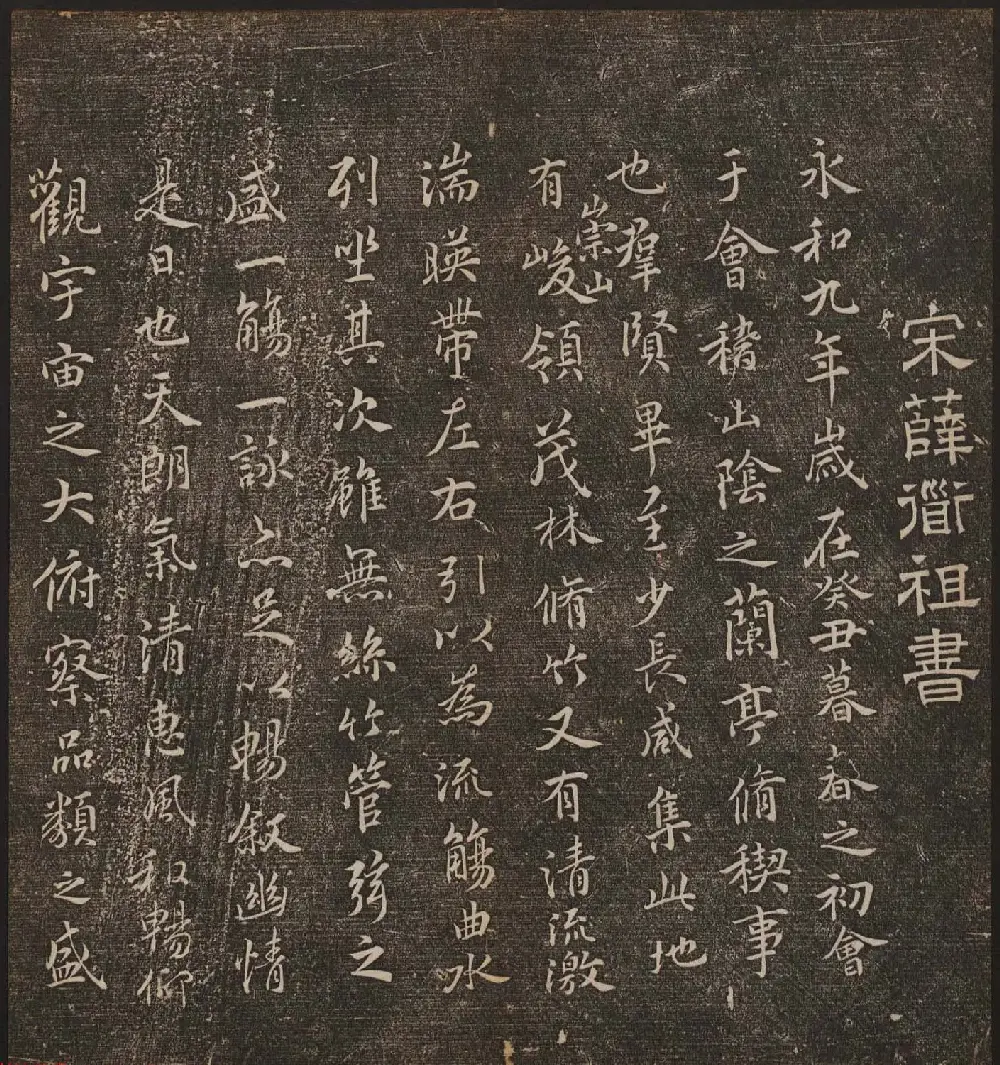 宋薛道祖書
永和九年歲在癸丑暮春之初會
于會稽山陰之蘭亭脩稧事
也羣賢畢至少長咸集此地
有崇山峻領茂林脩竹又有清流激
湍暎帶左右引以為流觴曲水
列坐其次雖無絲竹管弦之
盛一觴一詠亦足以暢敘幽情
是日也天朗氣清惠風和暢仰
觀宇宙之大俯察品類之盛